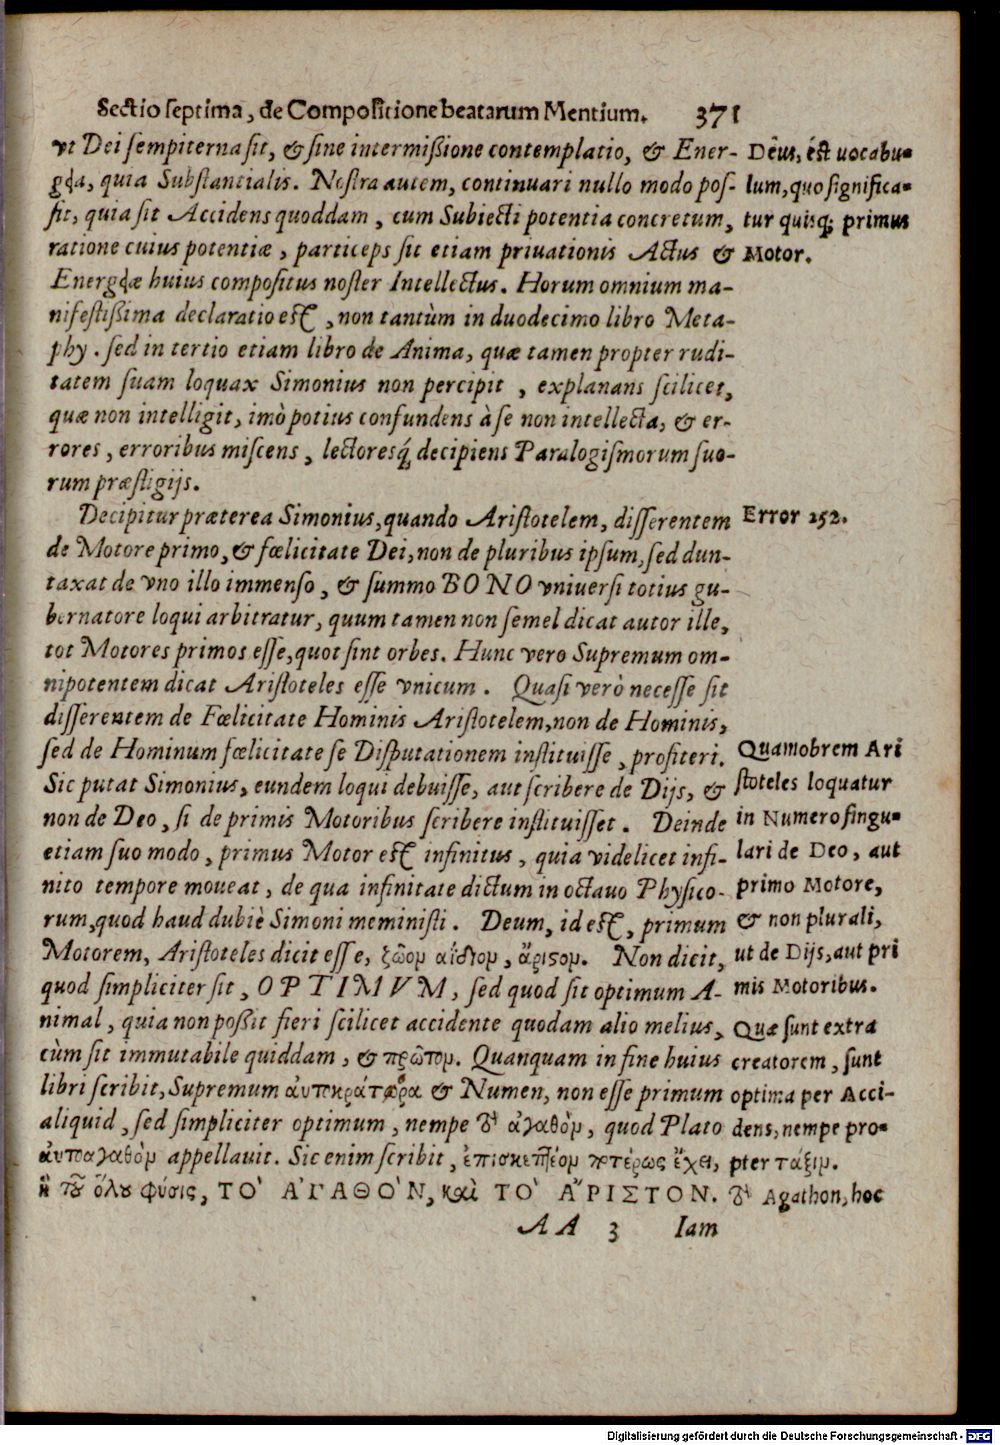 Sectio septima, de Compositione beatarum Mentium. 371
vt Dei sempiterna sit, & sine intermißione contemplatio, & Ener-
gεia, quia Substantialis. Nostra autem, continuari nullo modo pos-
sit, quia sit Accidens quoddam, cum Subiecti potentia concretum,
ratione cuius potentiæ, particeps sit etiam priuationis Actus &
Energεiæ huius compositus noster Intellectus. Horum omnium ma-
nifestißima declaratio est, non tantùm in duodecimo libro Meta-
phy. sed in tertio etiam libro de Anima, quæ tamen propter rudi-
tatem suam loquax Simonius non percipit, explanans scilicet,
quæ non intelligit, imò potius confundens à se non intellecta, & er-
rores, erroribus miscens, lectoresq́; decipiens Paralogismorum suo-
rum præstigijs.
Decipitur præterea Simonius, quando Aristotelem, disserentem
de Motore primo, & fœlicitate Dei, non de pluribus ipsum, sed dun-
taxat de vno illo immenso, & summo BONO vniuersi totius gu-
bernatore loqui arbitratur, quum tamen non semel dicat autor ille,
tot Motores primos esse, quot sint orbes. Hunc vero Supremum om-
nipotentem dicat Aristoteles esse vnicum. Quasi verò necesse sit
disserentem de Fœlicitate Hominis Aristotelem, non de Hominis,
sed de Hominum fœlicitate se Disputationem instituisse, profiteri.
Sic putat Simonius, eundem loqui debuisse, aut scribere de Dijs, &
non de Deo, si de primis Motoribus scribere instituisset. Deinde
etiam suo modo, primus Motor est infinitus, quia videlicet infi-
nito tempore moueat, de qua infinitate dictum in octauo Physico-
rum, quod haud dubiè Simoni meministi. Deum, id est, primum
Motorem, Aristoteles dicit esse, ζῶομ αΐδιομ, ἄριστομ. Non dicit,
quod simpliciter sit, OPTIMVM, sed quod sit optimum A-
nimal, quia non poßit fieri scilicet accidente quodam alio melius,
cùm sit immutabile quiddam, & πρῶτομ. Quanquam in fine huius
libri scribit, Supremum αυτοκρατορα & Numen, non esse primum
aliquid, sed simpliciter optimum, nempe τὸ ἀγαθὸμ, quod Plato
αυτοαγαθὸμ appellauit. Sic enim scribit, ἐπισκεπτέομ ποτέρως ἔχει,
ἡ τοῦ ὅλου φύσις, ΤΟ' Α'ΓΑΘΟ'Ν, καὶ ΤΟ' Α῎ΡΙΣΤΟΝ.
AA 3 Iam
Deus, est uocabu-
lum, quo significa-
tur quisq; primus
Motor.
Error 252.
Quamobrem Ari
stoteles loquatur
in Numero singu-
lari de Deo, aut
primo Motore,
& non plurali,
ut de Dijs, aut pri
mis Motoribus.
Quæ sunt extra
creatorem, sunt
optima per Acci-
dens, nempe pro-
pter τάξιμ.
τὸ Agathon, hoc
Digitalisierung gefördert durch die Deutsche Forschungsgemeinschaft - DFG